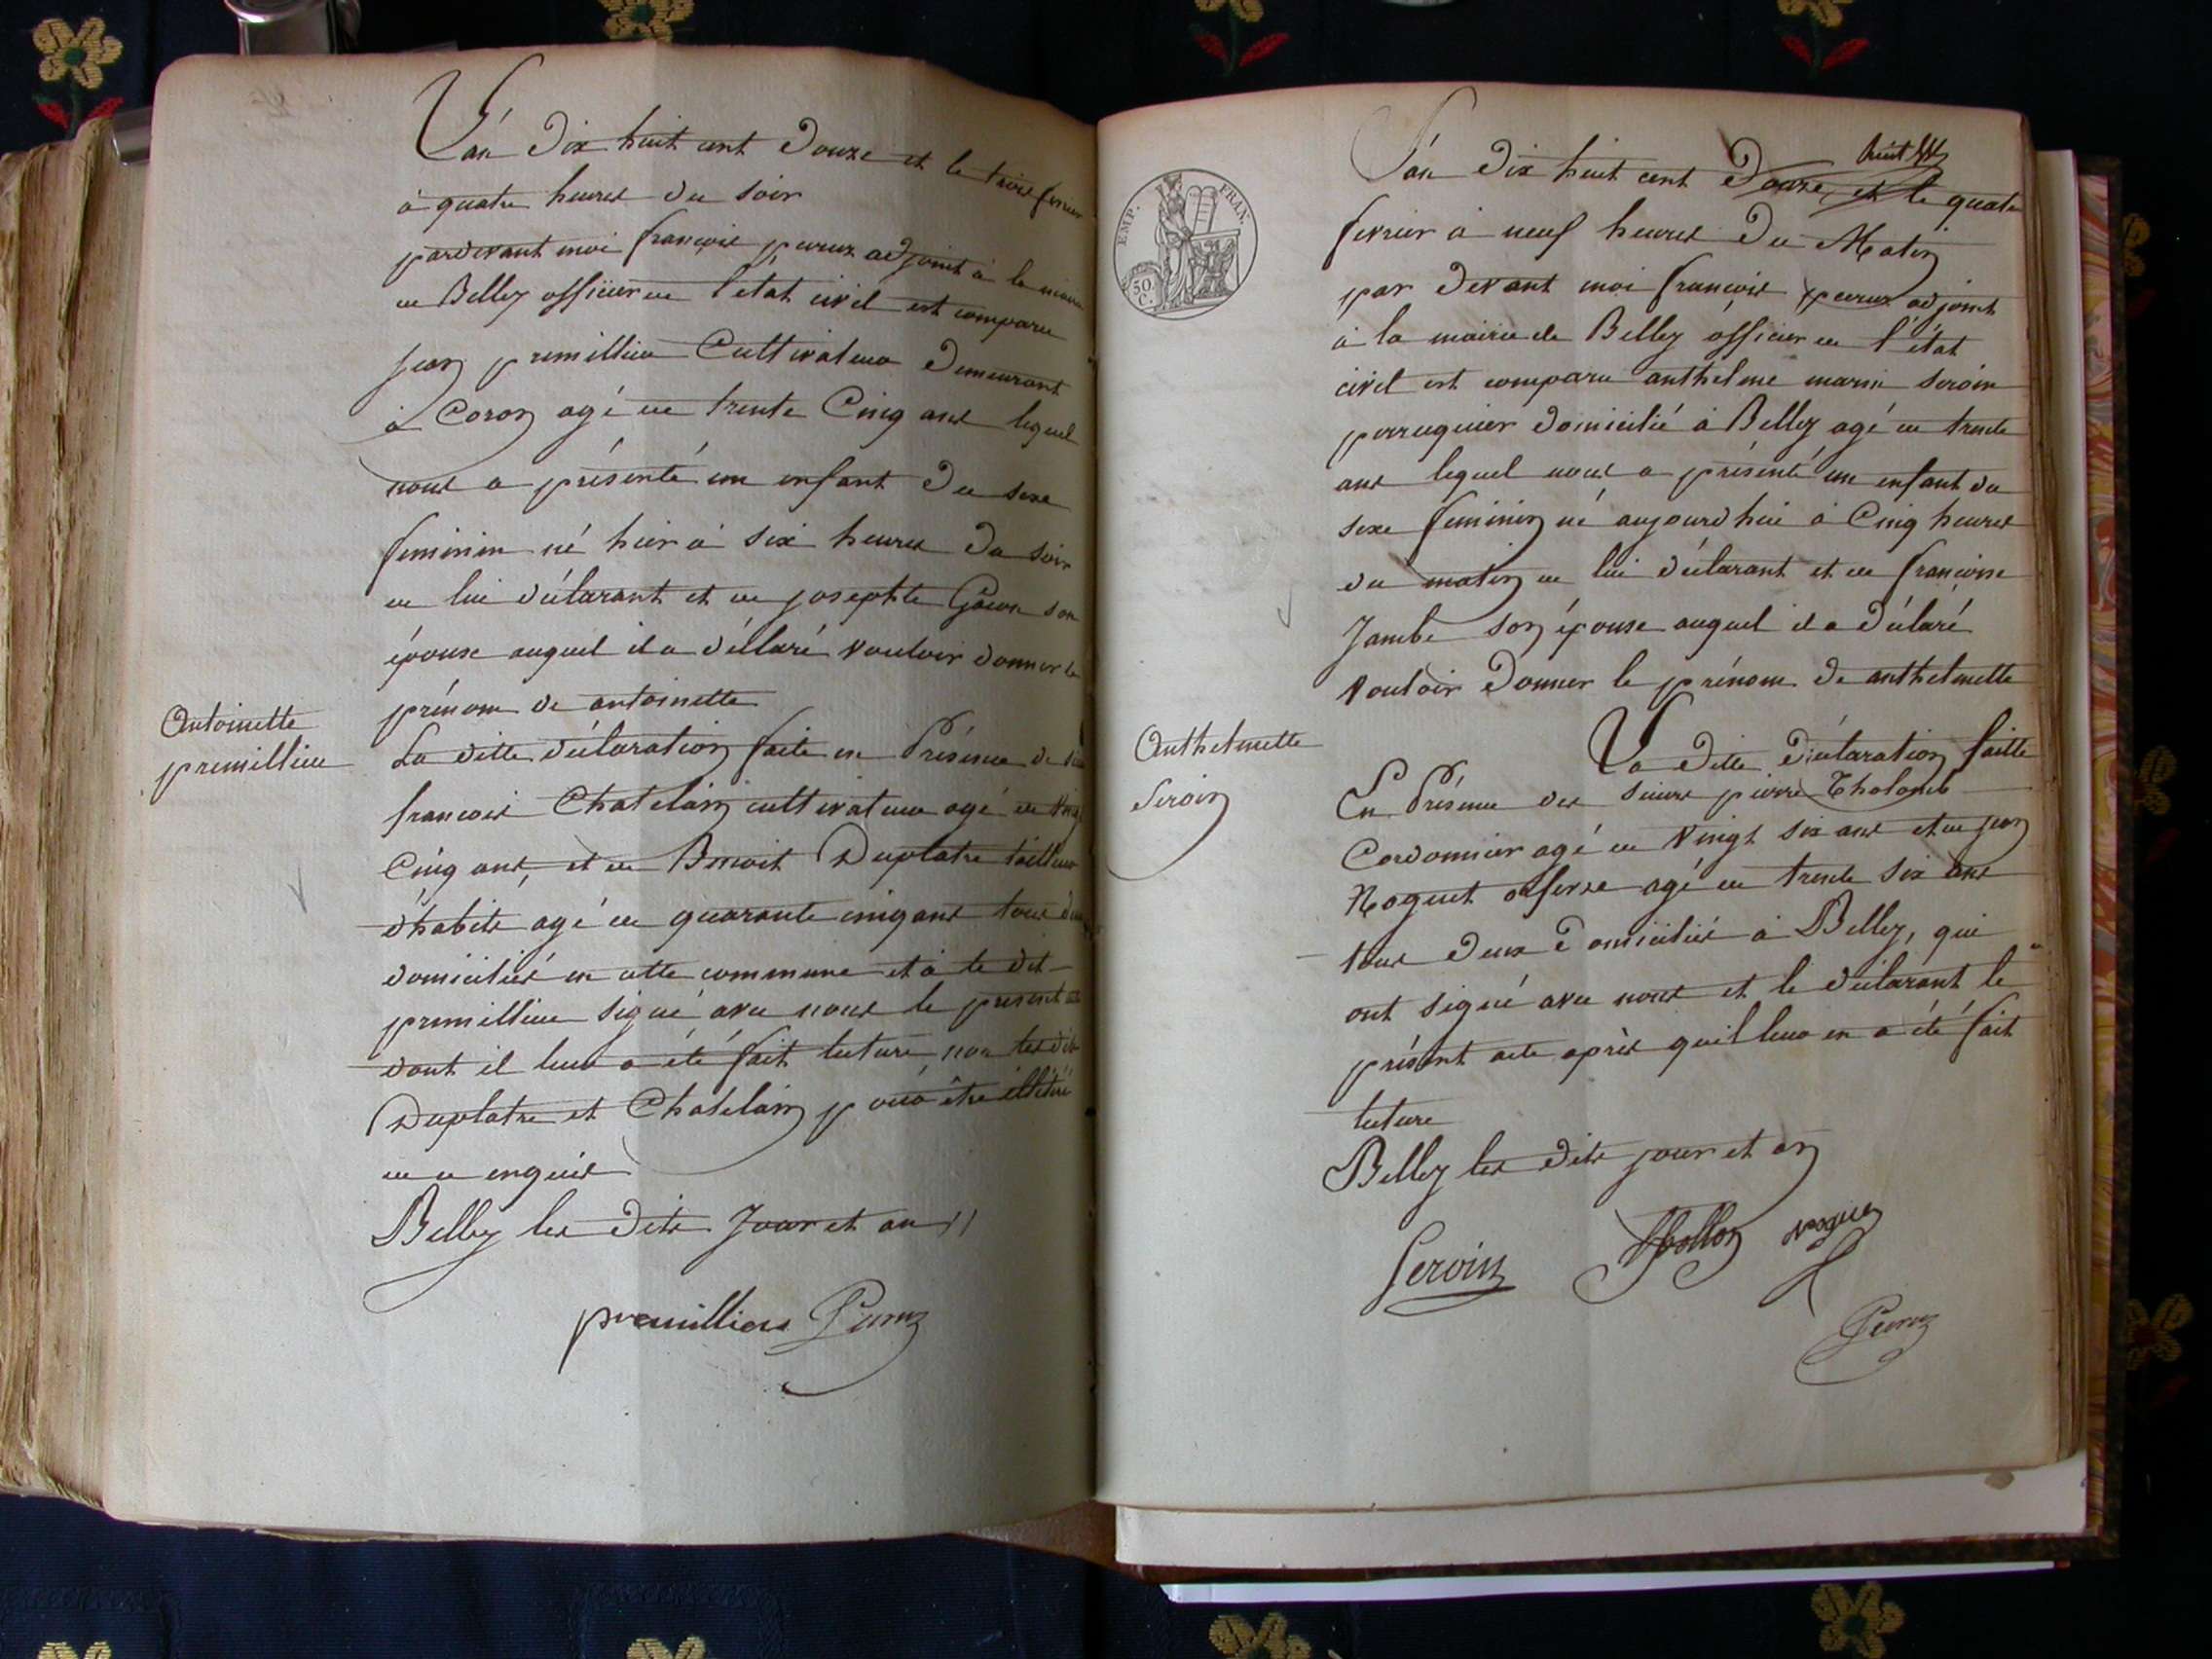 L'an dix huit cent douze et le trois fevrier
à quatre heures du soir
pardevant moi françois peruz adjoint à la mairie
de Belley officier de l'état civil est comparu
jean premillieu Cultivateur demeurant
à Coron agé de trente Cinq ans lequel
nous a présenté un enfant du sexe
feminin né hier à six heures du soir
de lui déclarant et de josephte son
épouse auquel il a déclaré vouloir donner le
prénom de antoinette
Antoinette
premillieu
La ditte déclaration faite en Présence de
françois Chatelain cultivateur agé de vingt
Cinq ans, et de Benoit Duplatre tailleur
d'habits agé de quarante cinq ans tous deux
domiciliés en cette commune et à le dit
premillieu signé avec nous le present acte
dont il leur a été fait lecture, non les dits
Duplatre et Chatelain pour être illitéré
de ce enquis
Belley les dits Jour et an //
premillieu Peruz
EMP. FRAN.
50. C.
L'an dix huit cent Douze et le quatre
fevrier à neuf heures du Matin
par devant moi françois peruz adjoint
à la mairie de Belley officier de l'état
civil est comparu anthelme marin seroin
perruquier domicilié à Belley agé de trente
ans lequel nous a présenté un enfant du
sexe feminin né aujourd'hui à Cinq heures
du matin de lui déclarant et de françoise
Jambe son épouse auquel il a déclaré
vouloir donner le prénom de anthelmette
Anthelmette
Seroin
La ditte déclaration faitte
En Présence des sieurs pierre
Cordonnier agé de vingt six ans et de jean
Noguet agé de trente six ans
tous deux domiciliés à Belley, qui
ont signé avec nous et le déclarant le
présent acte après quil leur en a été fait
lecture
Belley les dits jour et an
Seroin noguet
Peruz